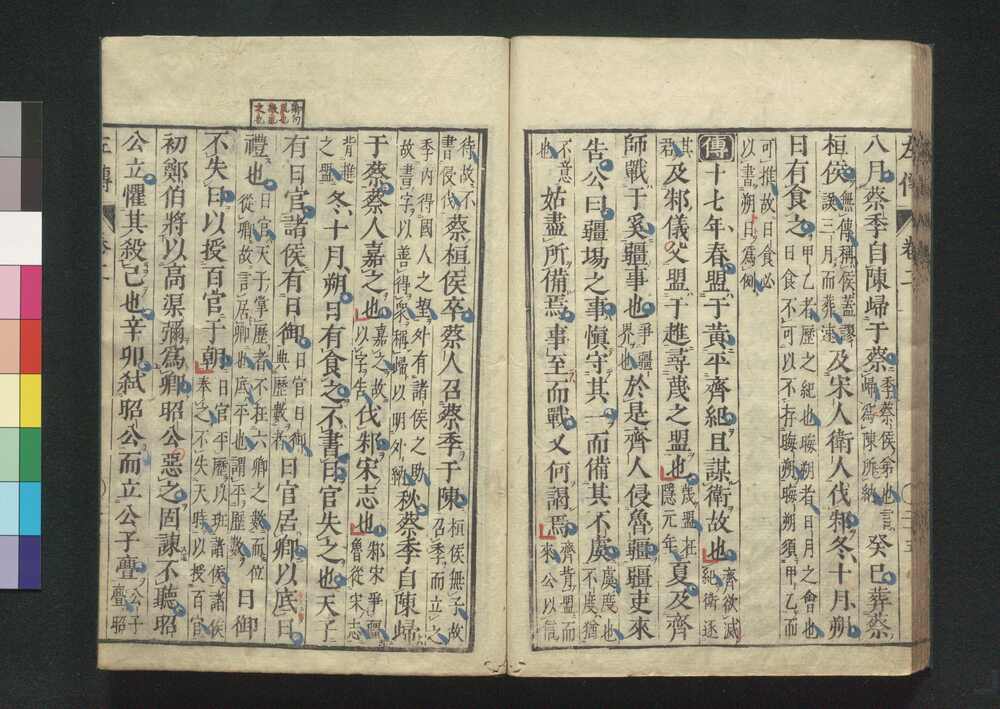 八月蔡季自陳歸于蔡季蔡侯弟也言歸爲陳所納癸巳葬蔡
桓侯無傳稱侯蓋謬誤三月而葬速及宋人衛人伐邾冬十月朔
日有食之甲乙者歷之紀也晦朔者日月之會也日食不可以不存晦朔晦朔須甲乙而
可推故日食必以書朔日爲例
傳十七年春盟于黃平齊紀且謀衛故也齊欲滅紀衛逐
其君及邾儀父盟于趡尋蔑之盟也蔑盟在隱元年夏及齊
師戰于奚疆事也爭疆界也於是齊人侵魯疆疆吏來
告公曰疆埸之事愼守其一而備其不虞虞度也不度猶
不意也姑盡所備焉事至而戰又何謁焉齊背盟而來公以信
待故不書侵伐蔡桓侯卒蔡人召蔡季于陳桓侯無子故召季而立之
季內得國人之望外有諸侯之助故書字以善得衆稱歸以明外納秋蔡季自陳歸
于蔡蔡人嘉之也嘉之故以字告伐邾宋志也邾宋爭疆魯從宋志
背趡之盟冬十月朔日有食之不書日官失之也天子
有日官諸侯有日御日官日御典歷數者日官居卿以底日
禮也日官天子掌歷者不在六卿之數而位從卿故言居卿也底平也謂平歷數日御
不失日以授百官于朝日官平歷以班諸侯諸侯奉之不失天時以授百官
初鄭伯將以高渠彌爲卿昭公惡之固諫不聽昭
公立懼其殺己也辛卯弒昭公而立公子亹公子亹昭
左傳 卷二